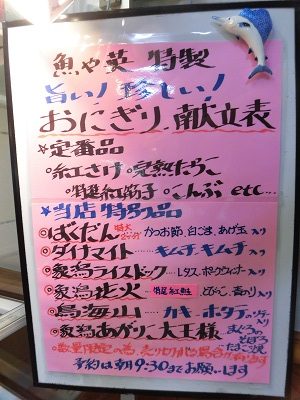 魚や英 特製
旨い!珍しい!
おにぎり献立表
★定番品
・紅さけ・完熟たらこ
・特選紅筋子・こんぶ etc…
★当店特別品
◎ばくだん 特大 かつお節、白ごま、あげ玉入り
◎ダイナマイト キムチ、キムチ入り
◎象潟ライスドック レタス、ポークウィンナー入り
◎象潟花火 特選紅鮭 とびっこ、青のり入り
◎鳥海山 カキ・ホタテのソテー入り
◎象潟あがりこ大王様 まぐろのそぼろ たまご
◎数量限定の為、売り切れる場合が有ります
予約は朝9:30までお願いします